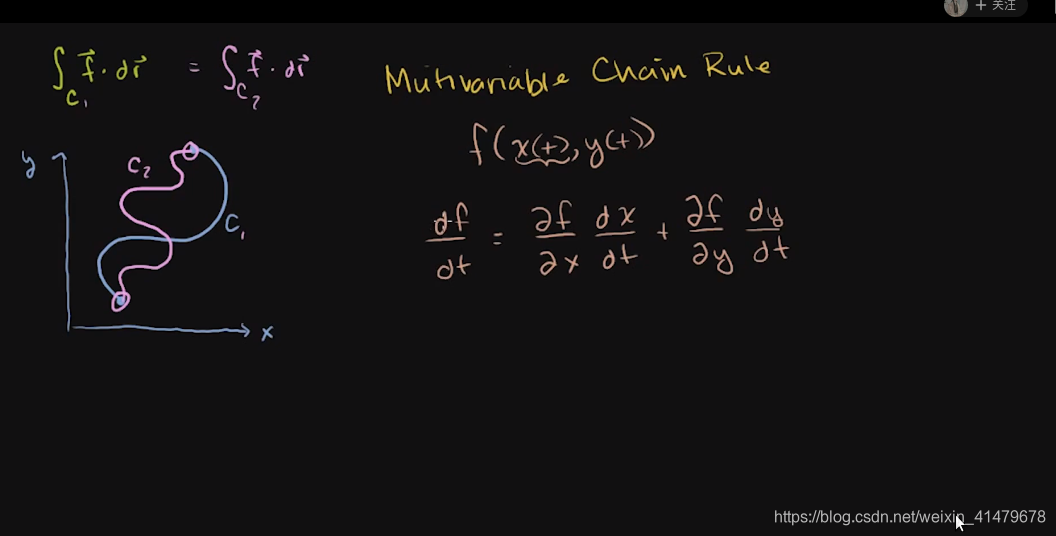 + 关注
∫_{C₁} f⃗ · dr⃗ = ∫_{C₂} f⃗ · dr⃗
Mutivariable Chain Rule
f(x(t), y(t))
df/dt = ∂f/∂x dx/dt + ∂f/∂y dy/dt
y
C₂
C₁
x
https://blog.csdn.net/weixin_41479678